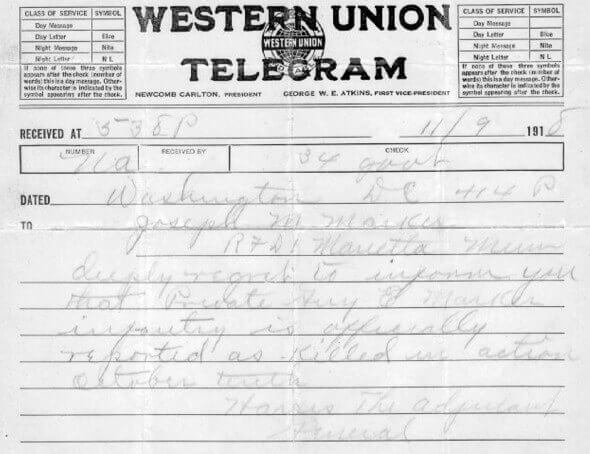 CLASS OF SERVICE SYMBOL
Day Message
Day Letter Blue
Night Message Nite
Night Letter N L
If none of these three symbols
appears after the check (number of
words) this is a day message. Other-
wise its character is indicated by the
symbol appearing after the check.
WESTERN UNION
WESTERN UNION
TELEGRAM
NEWCOMB CARLTON, PRESIDENT GEORGE W. E. ATKINS, FIRST VICE-PRESIDENT
CLASS OF SERVICE SYMBOL
Day Message
Day Letter Blue
Night Message Nite
Night Letter N L
If none of these three symbols
appears after the check (number of
words) this is a day message. Other-
wise its character is indicated by the
symbol appearing after the check.
RECEIVED AT 535 P 11/9 1918
NUMBER RECEIVED BY CHECK
34 govt
DATED Washington DC 414 P
TO Joseph M Marker
RFD 1 Marietta Minn
deeply regret to inform you
that Private Guy E Marker
infantry is officially
reported as killed in action
October tenth
Harris The adjutant
General